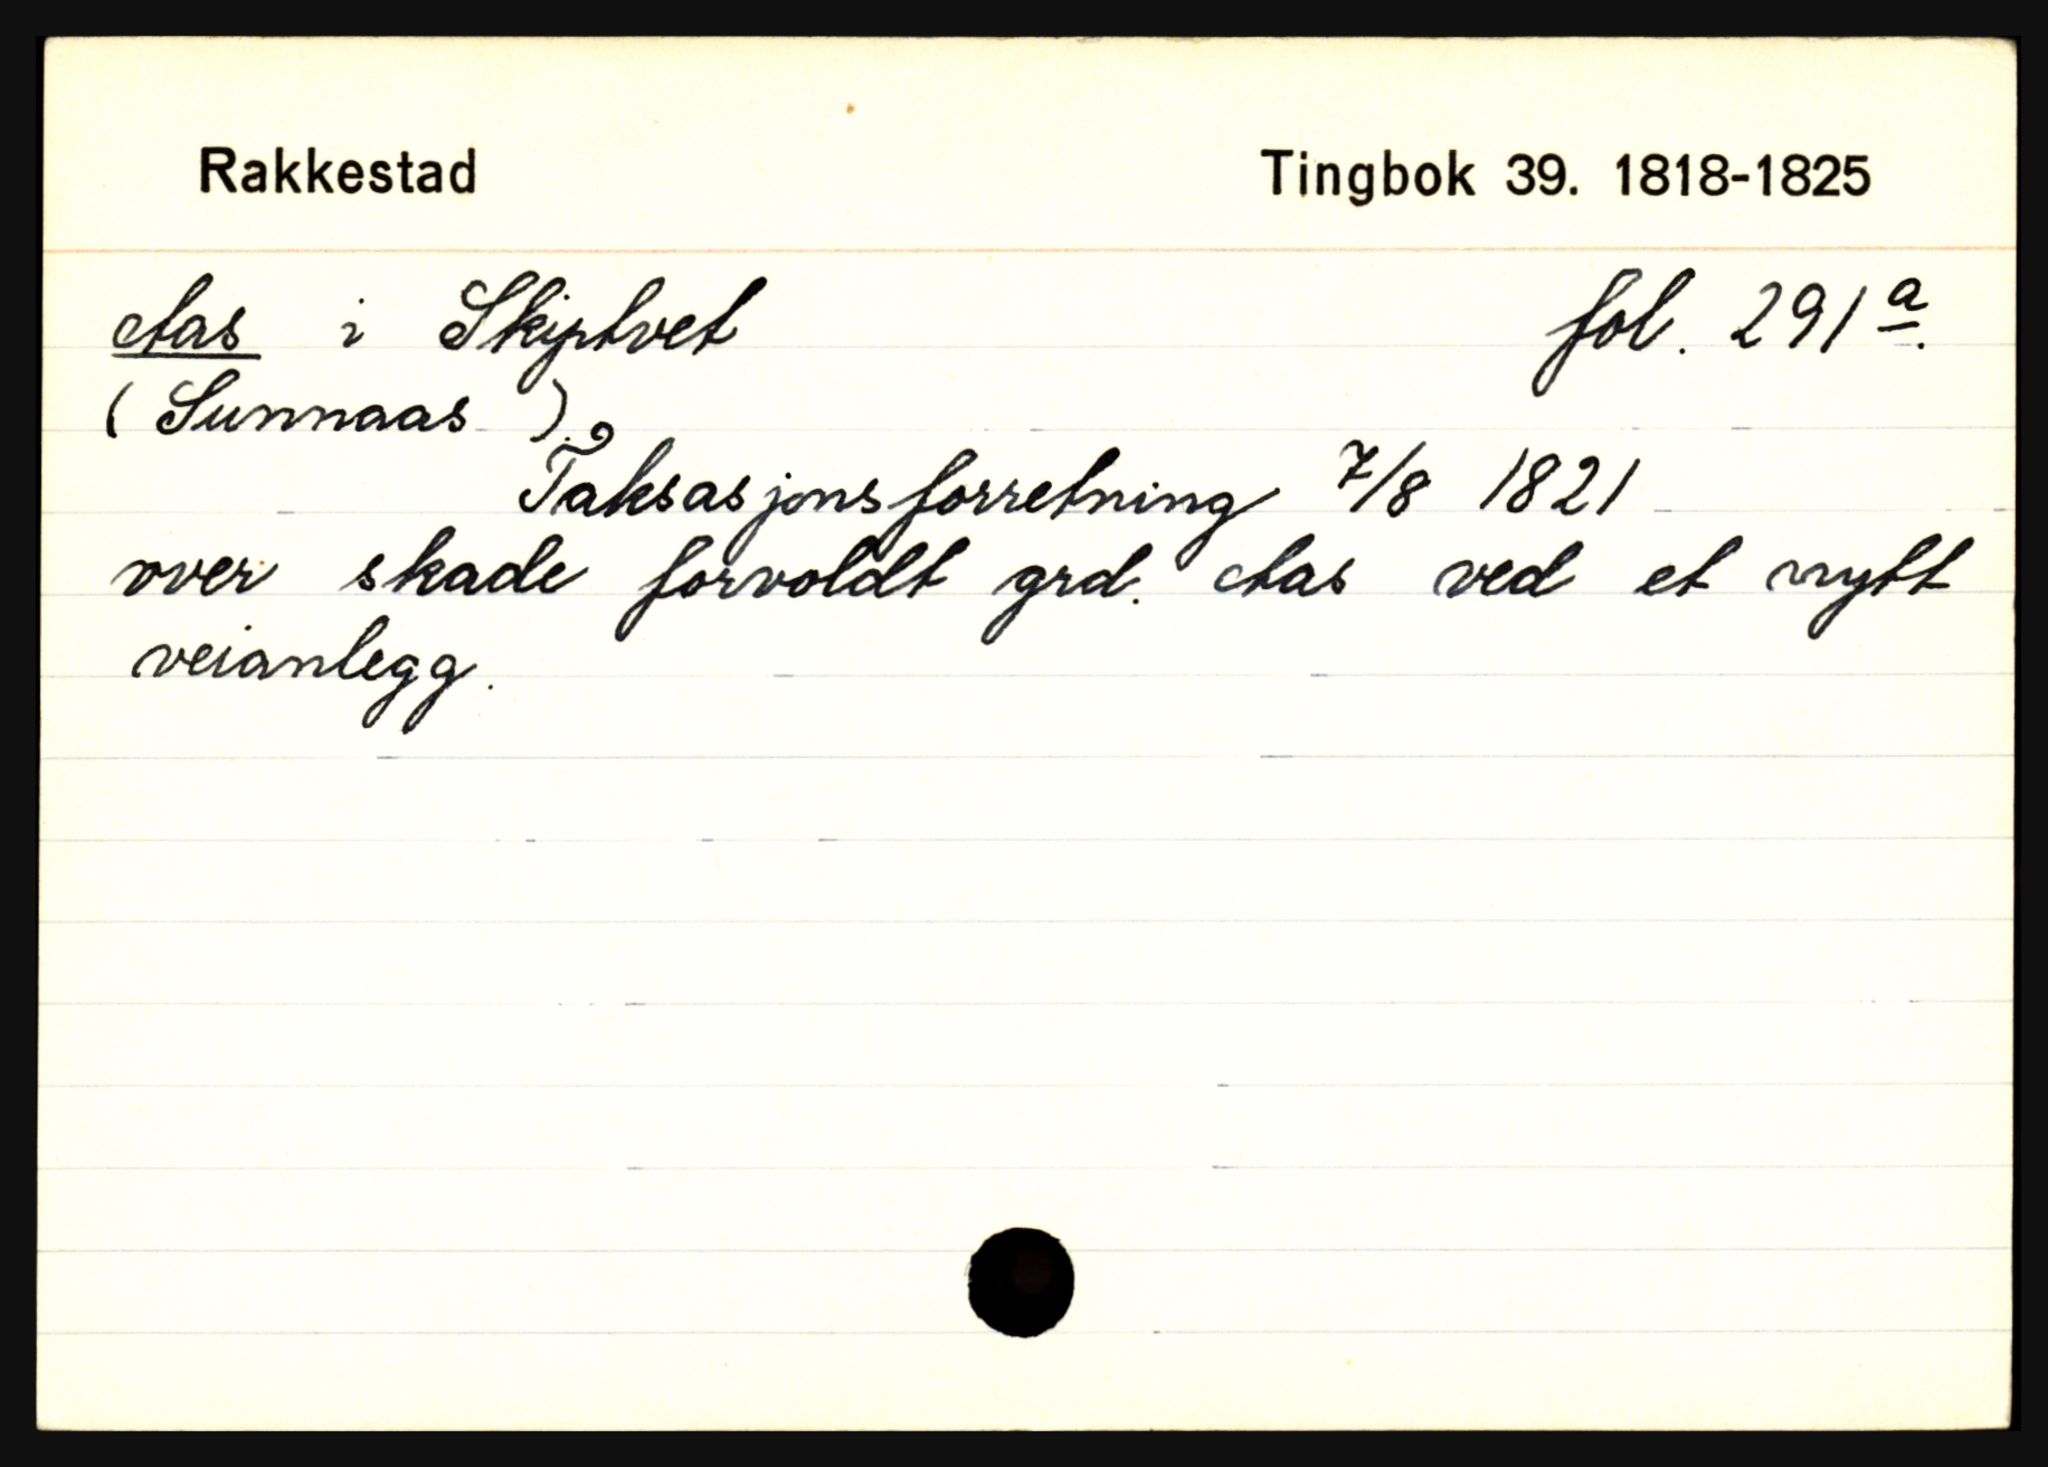 Rakkestad Tingbok 39. 1818-1825
Aas i Skiptvet fol. 291a.
(Sunnaas).
Taksasjonsforretning 7/8 1821
over skade forvoldt grd. Aas ved et nytt
veianlegg.